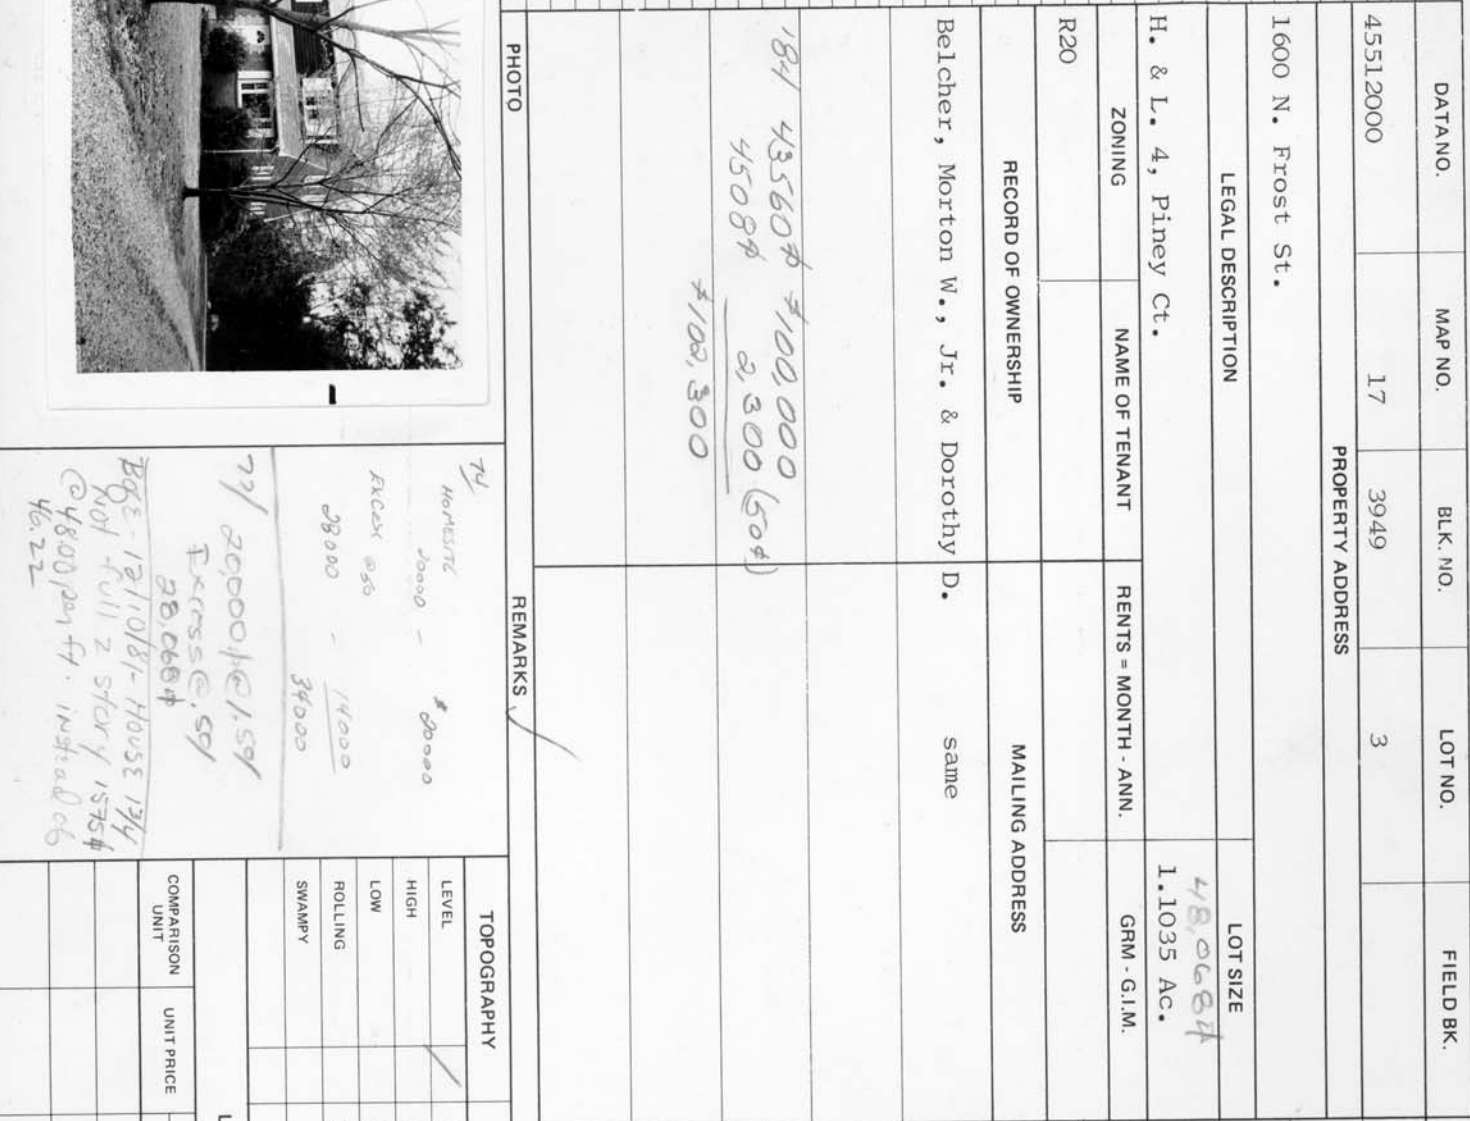 DATA NO. MAP NO. BLK. NO. LOT NO. FIELD BK.
45512000 17 3949 3
PROPERTY ADDRESS
1600 N. Frost St.
LEGAL DESCRIPTION LOT SIZE
48,068⌗
H. & L. 4, Piney Ct. 1.1035 Ac.
ZONING NAME OF TENANT RENTS = MONTH - ANN. GRM - G.I.M.
R20
RECORD OF OWNERSHIP MAILING ADDRESS
Belcher, Morton W., Jr. & Dorothy D. same
'84 43560⌗ $100,000
4508⌗ 2,300 (50¢)
$102,300
PHOTO REMARKS
74/
HOMESITE
20000 - $20000
EXCESS @50
28000 - 14000
34000
77/ 20,000⌗@1.50/
Excess@.50/
28,068⌗
Bge - 12/10/81 - HOUSE 13/4
Not full 2 story 1575⌗
@48.00 per ft. instead of
46.22
TOPOGRAPHY
LEVEL
HIGH
LOW
ROLLING
SWAMPY
L
COMPARISON UNIT UNIT PRICE